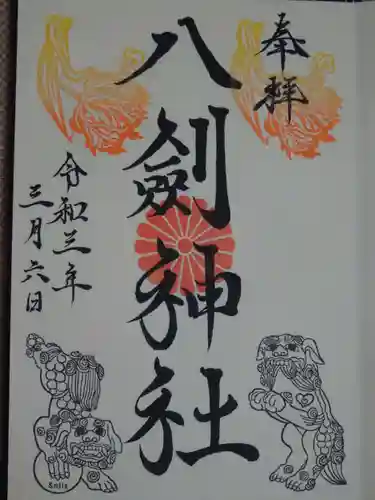 奉拝
八劔神社
令和三年
三月六日